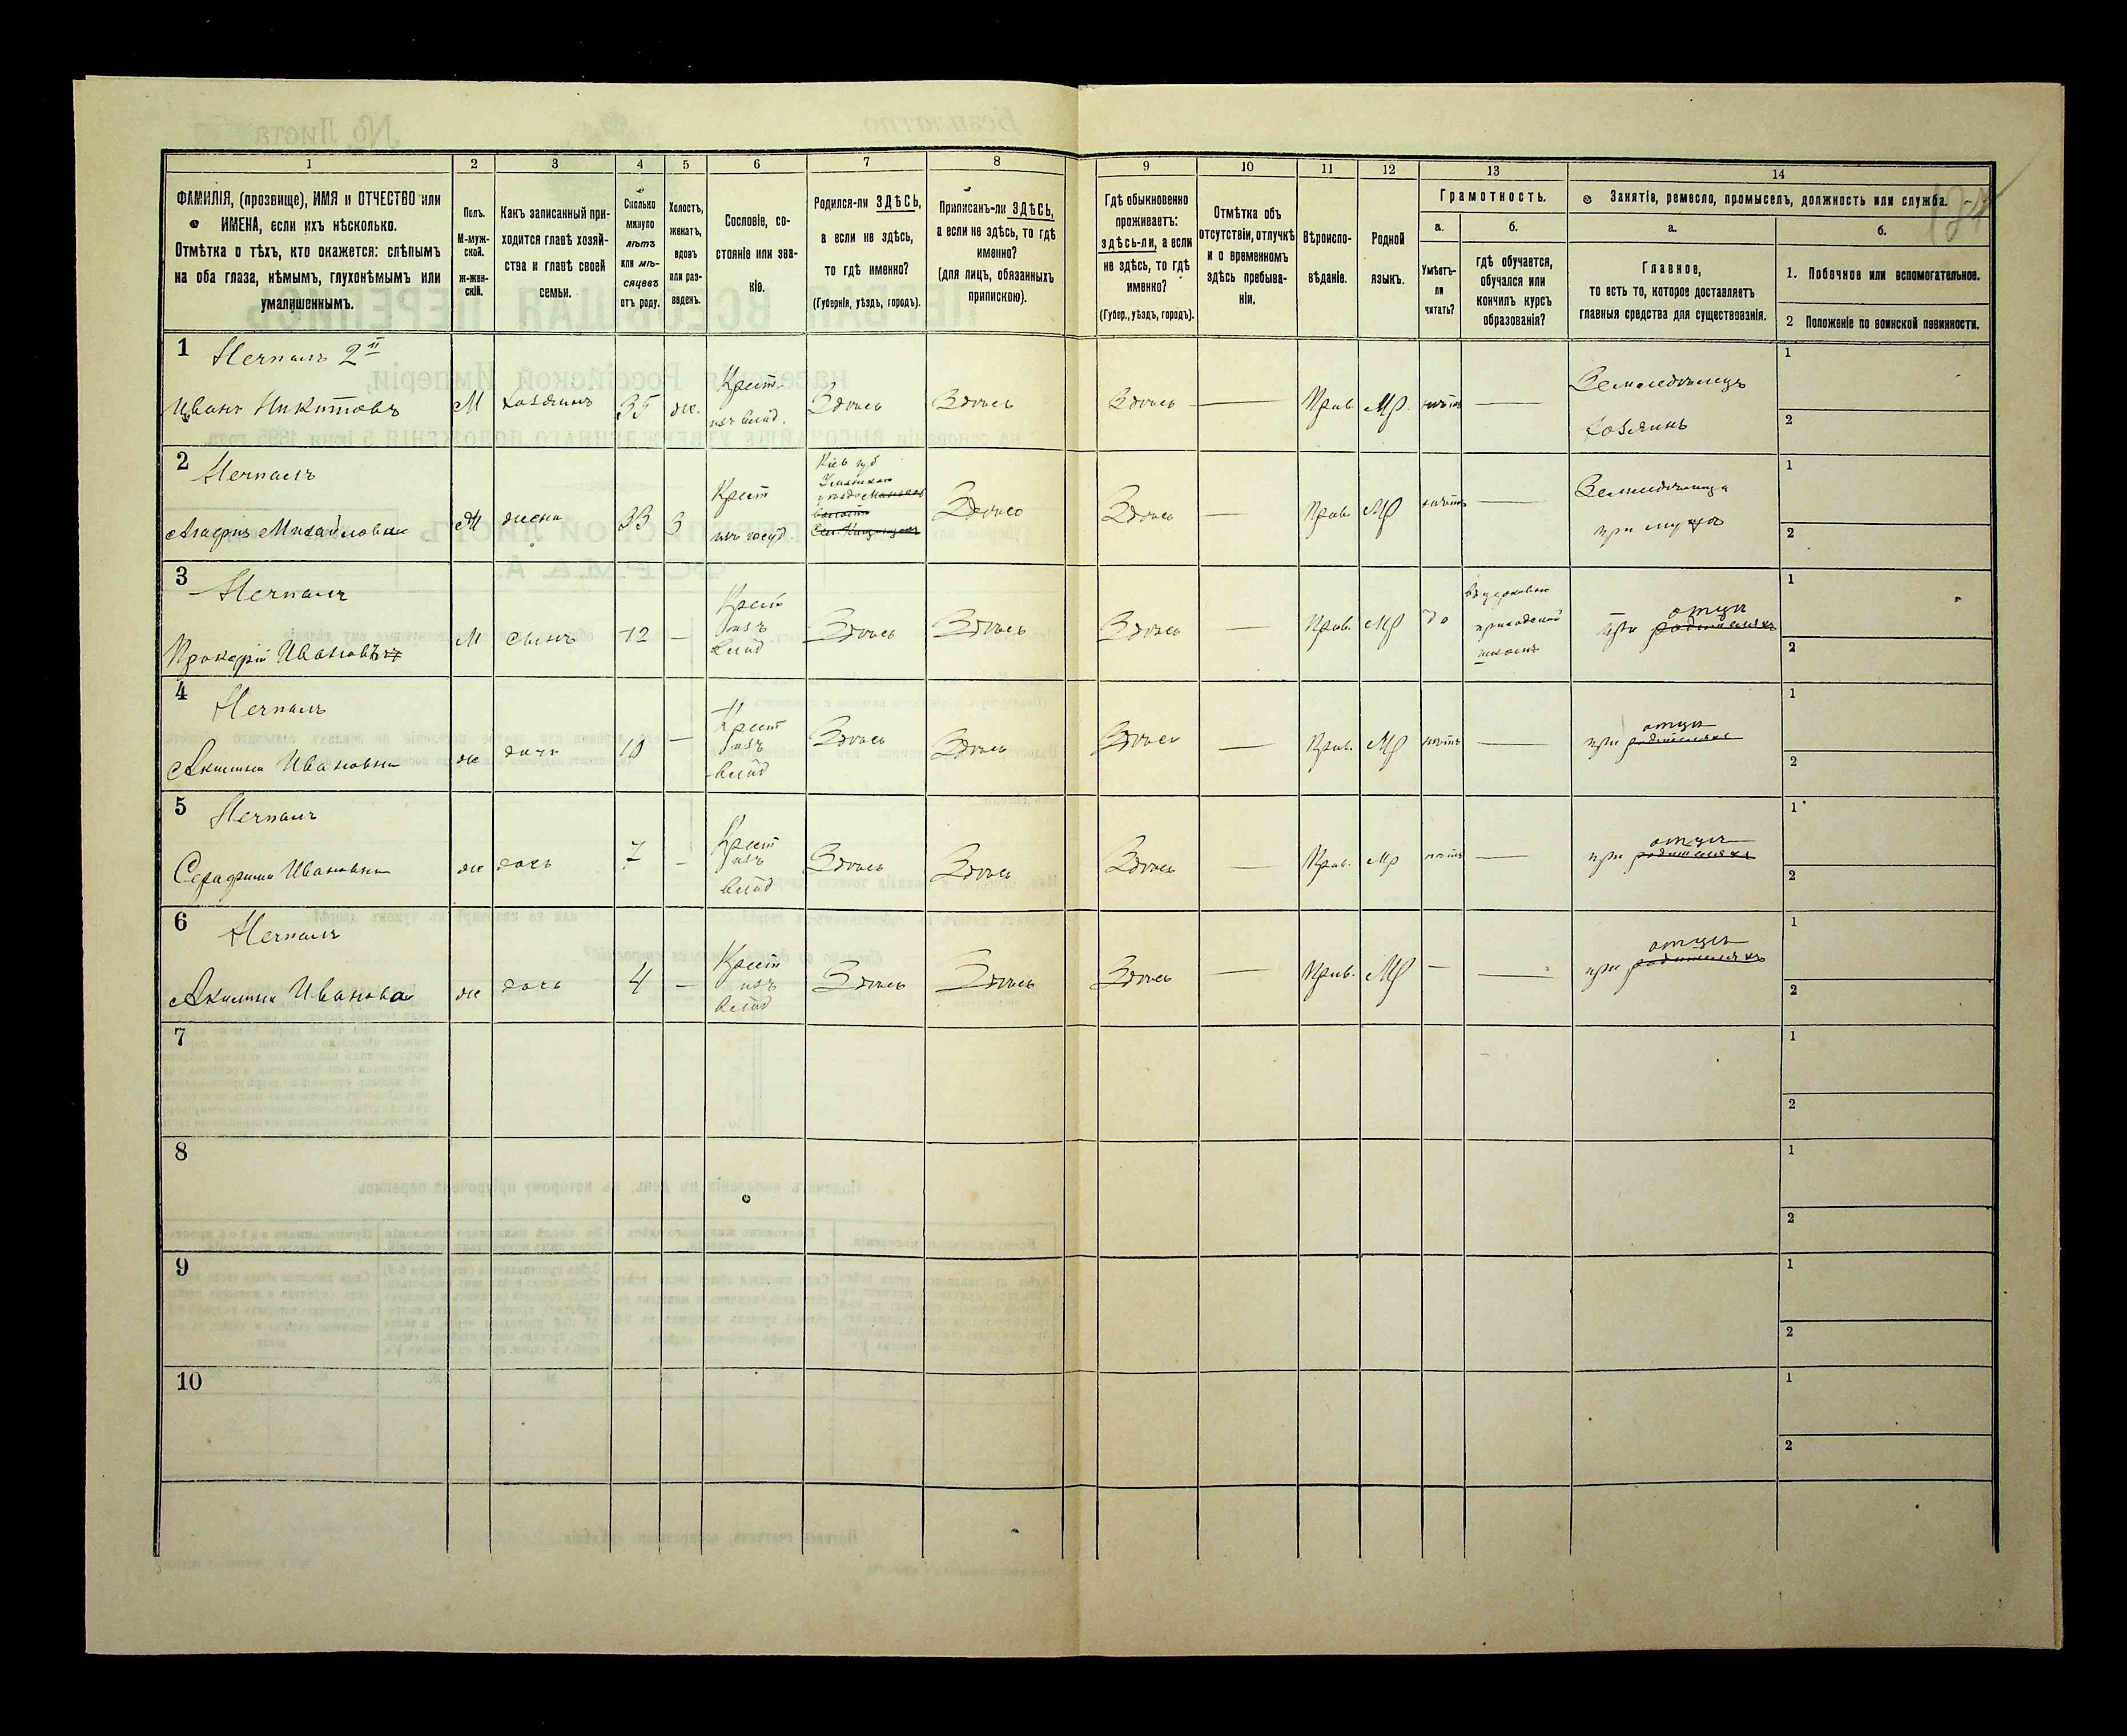 1
2
3
4
5
6
7
8
9
10
11
12
13
14
ФАМИЛІЯ, (прозвище), ИМЯ и ОТЧЕСТВО или
ИМЕНА, если ихъ нѣсколько.
Отмѣтка о тѣхъ, кто окажется: слѣпымъ
на оба глаза, нѣмымъ, глухонѣмымъ или
умалишеннымъ.
Полъ.
М-муж-
ской.
ж-жен-
скій.
Какъ записанный при-
ходится главѣ хозяй-
ства и главѣ своей
семьи.
Сколько
минуло
лѣтъ
или мѣ-
сяцевъ
отъ роду.
Холостъ,
женатъ,
вдовъ
или раз-
веденъ.
Сословіе, со-
стояніе или зва-
ніе.
Родился-ли ЗДѢСЬ,
а если не здѣсь,
то гдѣ именно?
(Губернія, уѣздъ, городъ).
Приписанъ-ли ЗДѢСЬ,
а если не здѣсь, то гдѣ
именно?
(для лицъ, обязанныхъ
припискою).
Гдѣ обыкновенно
проживаетъ:
здѣсь-ли, а если
не здѣсь, то гдѣ
именно?
(Губер., уѣздъ, городъ).
Отмѣтка объ
отсутствіи, отлучкѣ
и о временномъ
здѣсь пребыва-
ніи.
Вѣроиспо-
вѣданіе.
Родной
языкъ.
Грамотность.
а.
б.
Умѣетъ-
ли
читать?
гдѣ обучается,
обучался или
кончилъ курсъ
образованія?
Занятіе, ремесло, промыселъ, должность или служба.
а.
б.
Главное,
то есть то, которое доставляетъ
главныя средства для существованія.
1. Побочное или вспомогательное.
2 Положеніе по воинской повинности.
1
2й
Иванъ Никитовъ
М
хозяинъ
35
же.
Крест.
изъ влад.
Здѣсь
Здѣсь
Здѣсь
Прав.
Мр.
нѣтъ
Земледѣлецъ
хозяинъ
1
2
2
Михайловна
жена
33
З
Крест
изъ госуд.
Кіев губ
Уманскаго
уѣзда
Здѣсь
Здѣсь
Прав.
Мр
нѣтъ
при мужѣ
1
2
3
Прокофій Ивановъ
М
сынъ
12
Крест
изъ
влад
Здѣсь
Здѣсь
Здѣсь
Прав.
Мр
да
въ церковно
приходской
школѣ
при отцѣ
родителяхъ
1
2
4
Акилина Ивановна
же
дочь
10
Крест
изъ
влад
Здѣсь
Здѣсь
Здѣсь
Прав.
Мр
нѣтъ
при отцѣ
родителяхъ
1
2
5
Серафима Ивановна
же
дочь
7
Крест
изъ
влад
Здѣсь
Здѣсь
Здѣсь
Прав.
Мр
нѣтъ
при отцѣ
родителяхъ
1
2
6
Акилина Иванова
же
дочь
4
Крест
изъ
влад
Здѣсь
Здѣсь
Здѣсь
Прав.
Мр
при отцѣ
родителяхъ
1
2
7
1
2
8
1
2
9
1
2
10
1
2